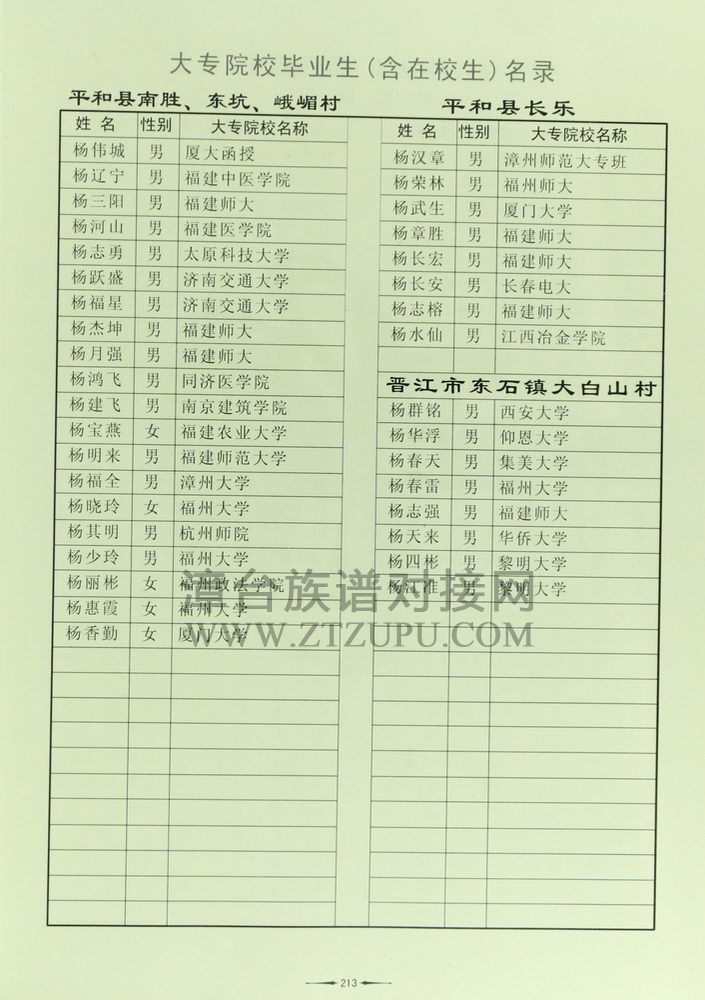 大专院校毕业生(含在校生)名录
平和县南胜、东坑、峨嵋村
姓名 性别 大专院校名称
杨伟城 男 厦大函授
杨辽宁 男 福建中医学院
杨三阳 男 福建师大
杨河山 男 福建医学院
杨志勇 男 太原科技大学
杨跃盛 男 济南交通大学
杨福星 男 济南交通大学
杨杰坤 男 福建师大
杨月强 男 福建师大
杨鸿飞 男 同济医学院
杨建飞 男 南京建筑学院
杨宝燕 女 福建农业大学
杨明来 男 福建师范大学
杨福全 男 漳州大学
杨晓玲 女 福州大学
杨其明 男 杭州师院
杨少玲 男 福州大学
杨丽彬 女 福州政法学院
杨惠霞 女 福州大学
杨香勤 女 厦门大学
平和县长乐
姓名 性别 大专院校名称
杨汉章 男 漳州师范大专班
杨荣林 男 福州师大
杨武生 男 厦门大学
杨章胜 男 福建师大
杨长宏 男 福建师大
杨长安 男 长春电大
杨志榕 男 福建师大
杨水仙 男 江西冶金学院
晋江市东石镇大白山村
杨群铭 男 西安大学
杨华浮 男 仰恩大学
杨春天 男 集美大学
杨春雷 男 福州大学
杨志强 男 福建师大
杨天来 男 华侨大学
杨四彬 男 黎明大学
杨江准 男 黎明大学
漳台族谱对接网
WWW.ZTZUPU.COM
213